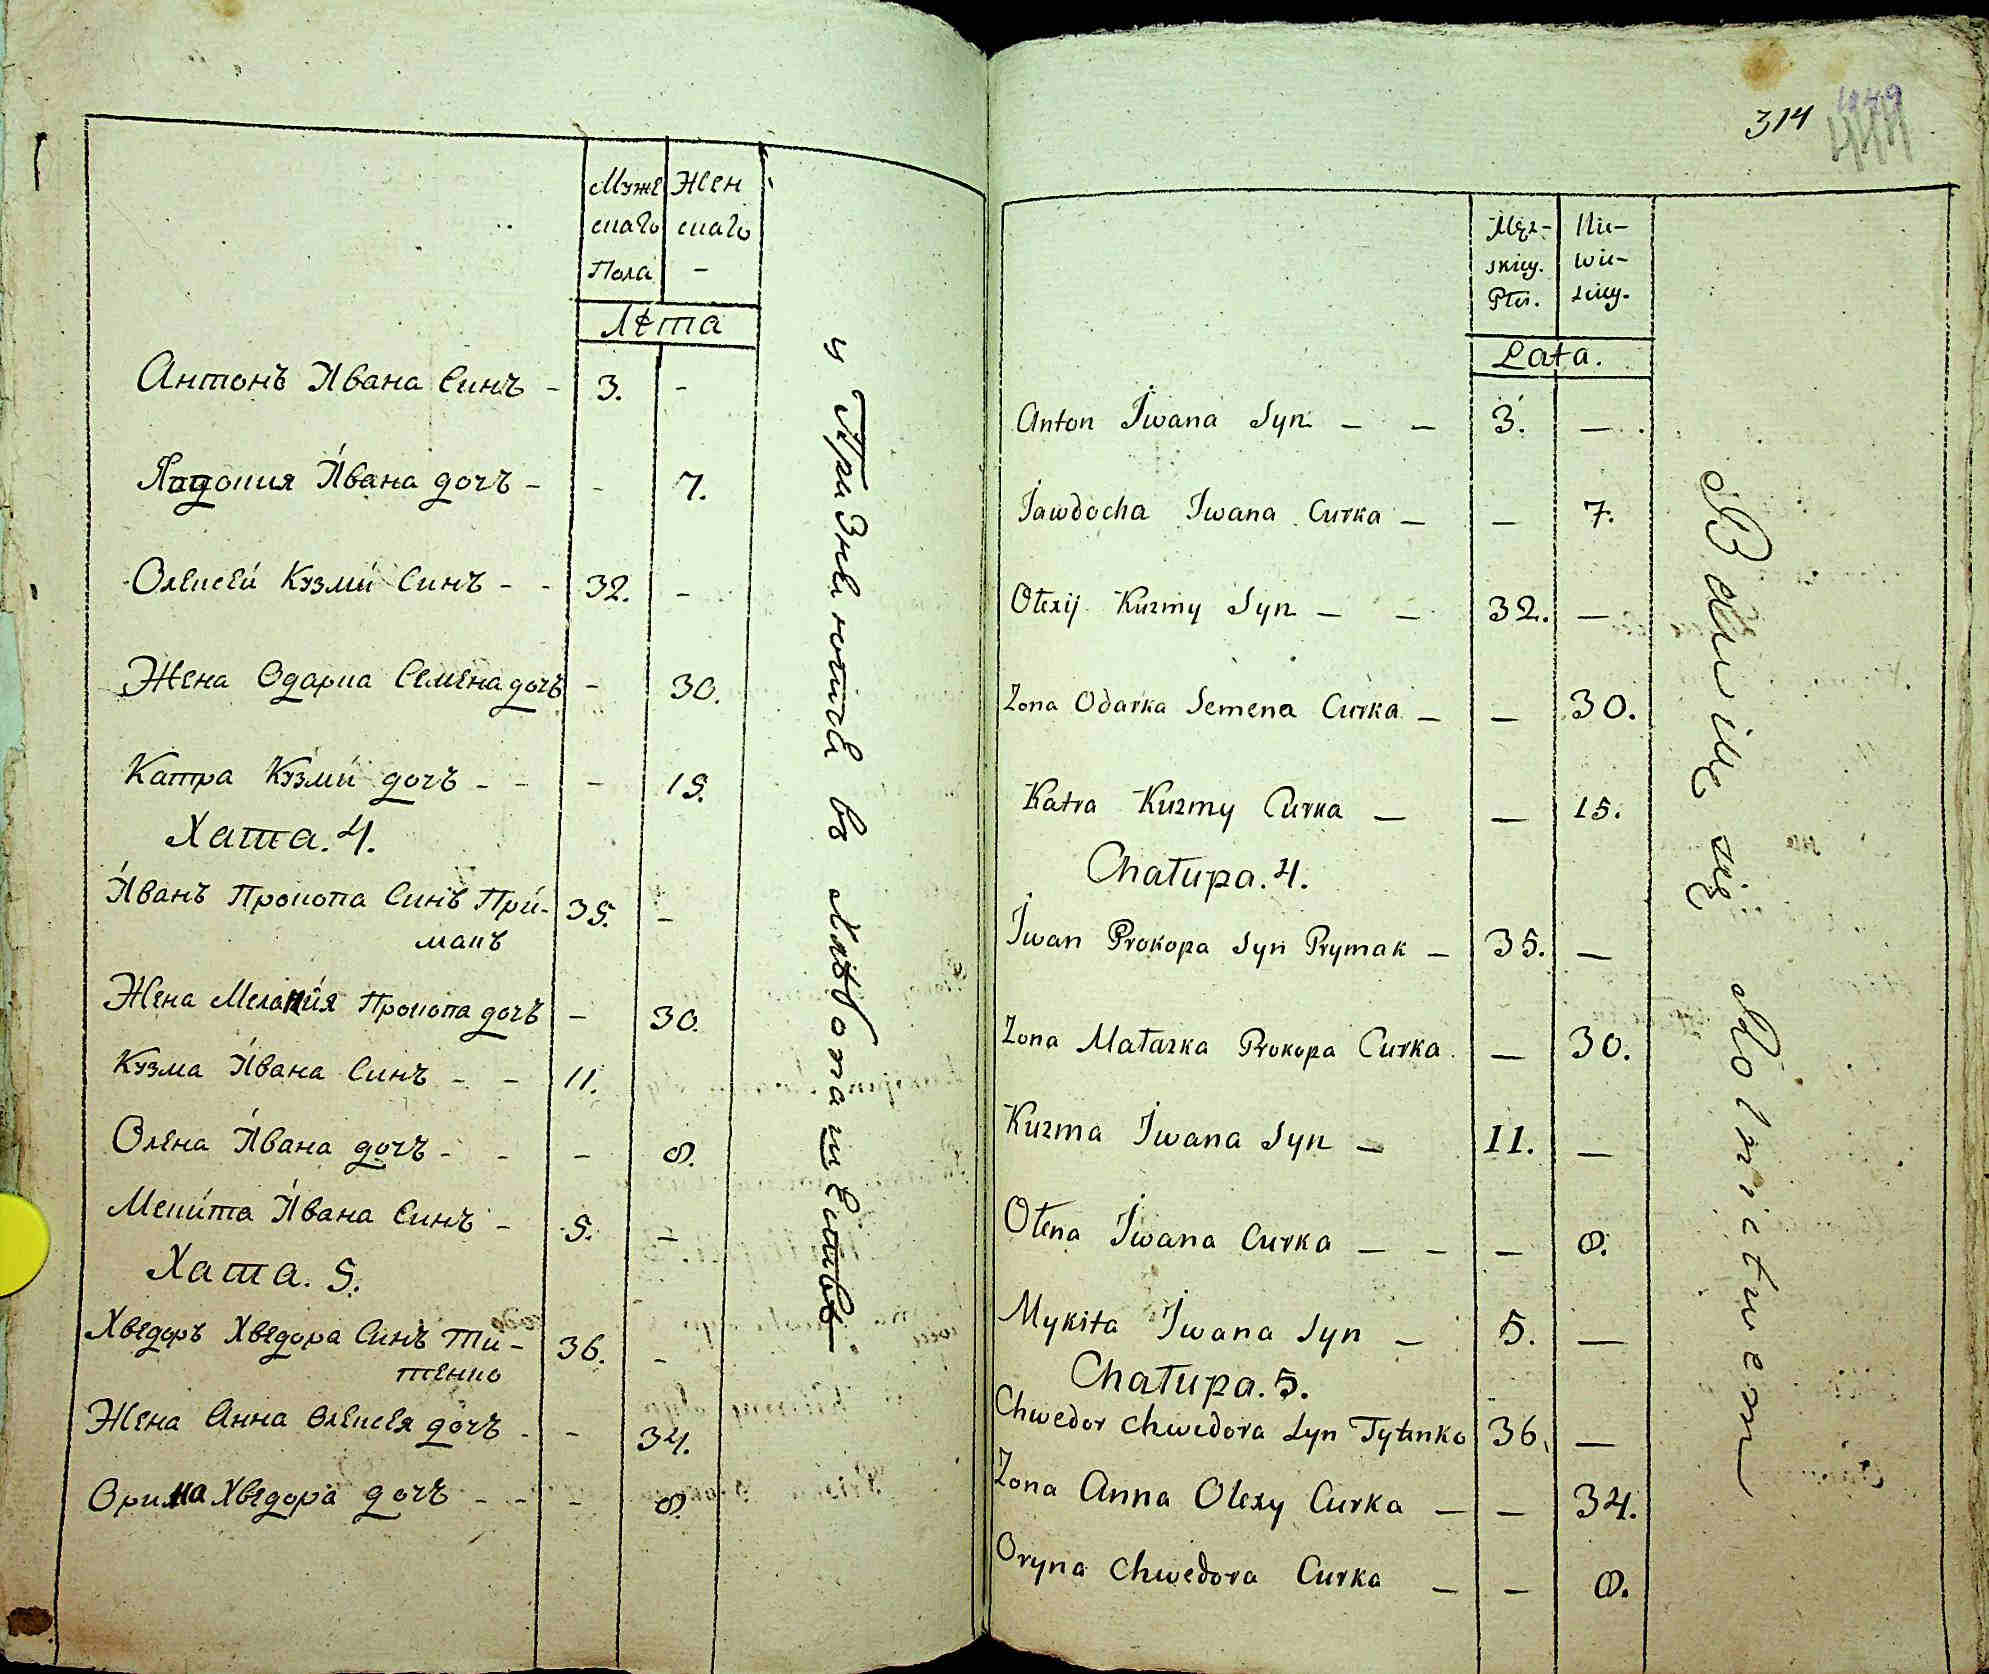 Муже Жен
скаго скаго
Пола -
Лѣта
Антонъ Ивана Синъ - 3. -
Ивана дочъ - - 7.
Олексей Кузмы Синъ - - 32. -
Жена Одарка Семена дочъ - 30.
Катра Кузмы дочъ - - - 15.
Хата. 4.
Иванъ Прокопа Синъ При- 35. -
макъ
Жена Меланія Прокопа дочъ - 30.
Кузма Ивана Синъ - - 11.
Олена Ивана дочъ - - - 8.
Мекита Ивана Синъ - 5. -
Хата. 5.
Хведоръ Хведора Синъ Ти- 36. -
тенко
Жена Анна Олексея дочъ - - 34.
Орина Хведора дочъ - - - 8.
у Празнекотов в Хлѣбопашествѣ
314
449
Męz- Nie-
skiey. wie-
Płci. sciey.
Lata.
Anton Iwana Syn - - 3. -
Jawdocha Iwana Curka - - 7.
Ołexij Kuzmy Syn - - 32. -
Zona Odarka Semena Curka - - 30.
Katra Kuzmy Curka - - 15.
Chałupa. 4.
Iwan Prokopa Syn Prymak - 35. -
Zona Małaszka Prokopa Curka - 30.
Kuzma Iwana Syn - 11. -
Ołena Iwana Curka - - - 8.
Mykita Iwana Syn - 5. -
Chałupa. 5.
Chwedor Chwedora Syn Tytenko 36. -
Zona Anna Olexy Curka - - 34.
Oryna Chwedora Curka - - 8.
Bawią się Rolnictwem